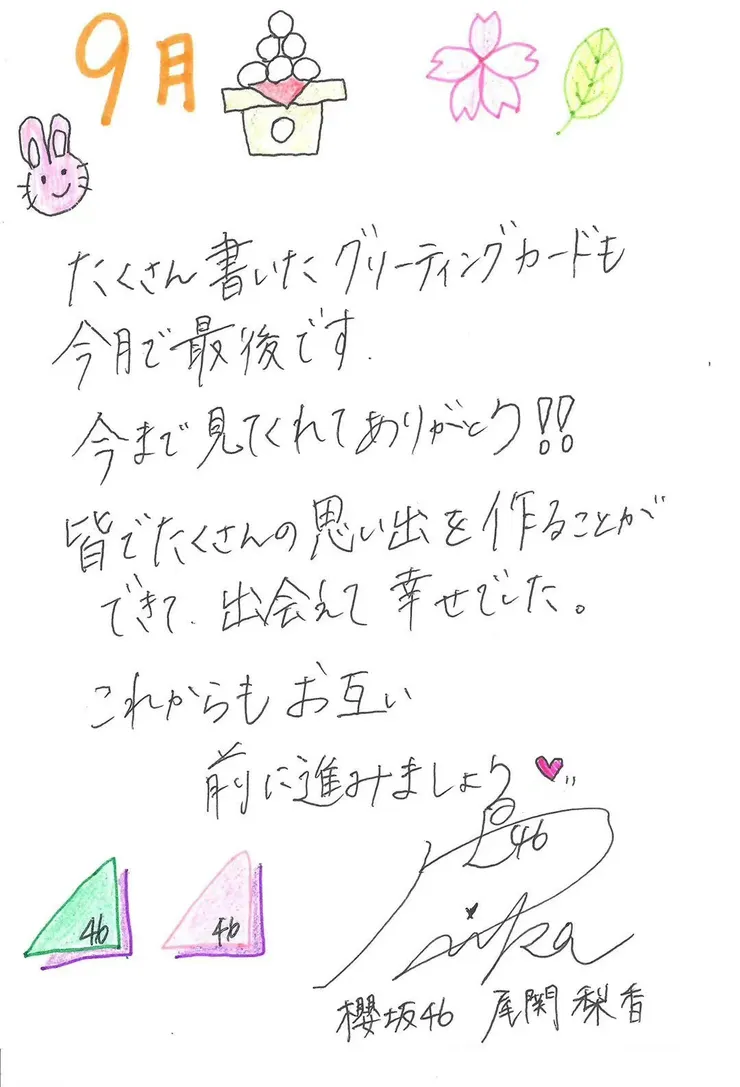 9月
たくさん書いたグリーティングカードも
今月で最後です.
今まで見てくれてありがとう!!
皆でたくさんの思い出を作ることが
できて、出会えて幸せでした。
これからもお互い
前に進みましょう
46
Rika
46
46
櫻坂46 尾関梨香